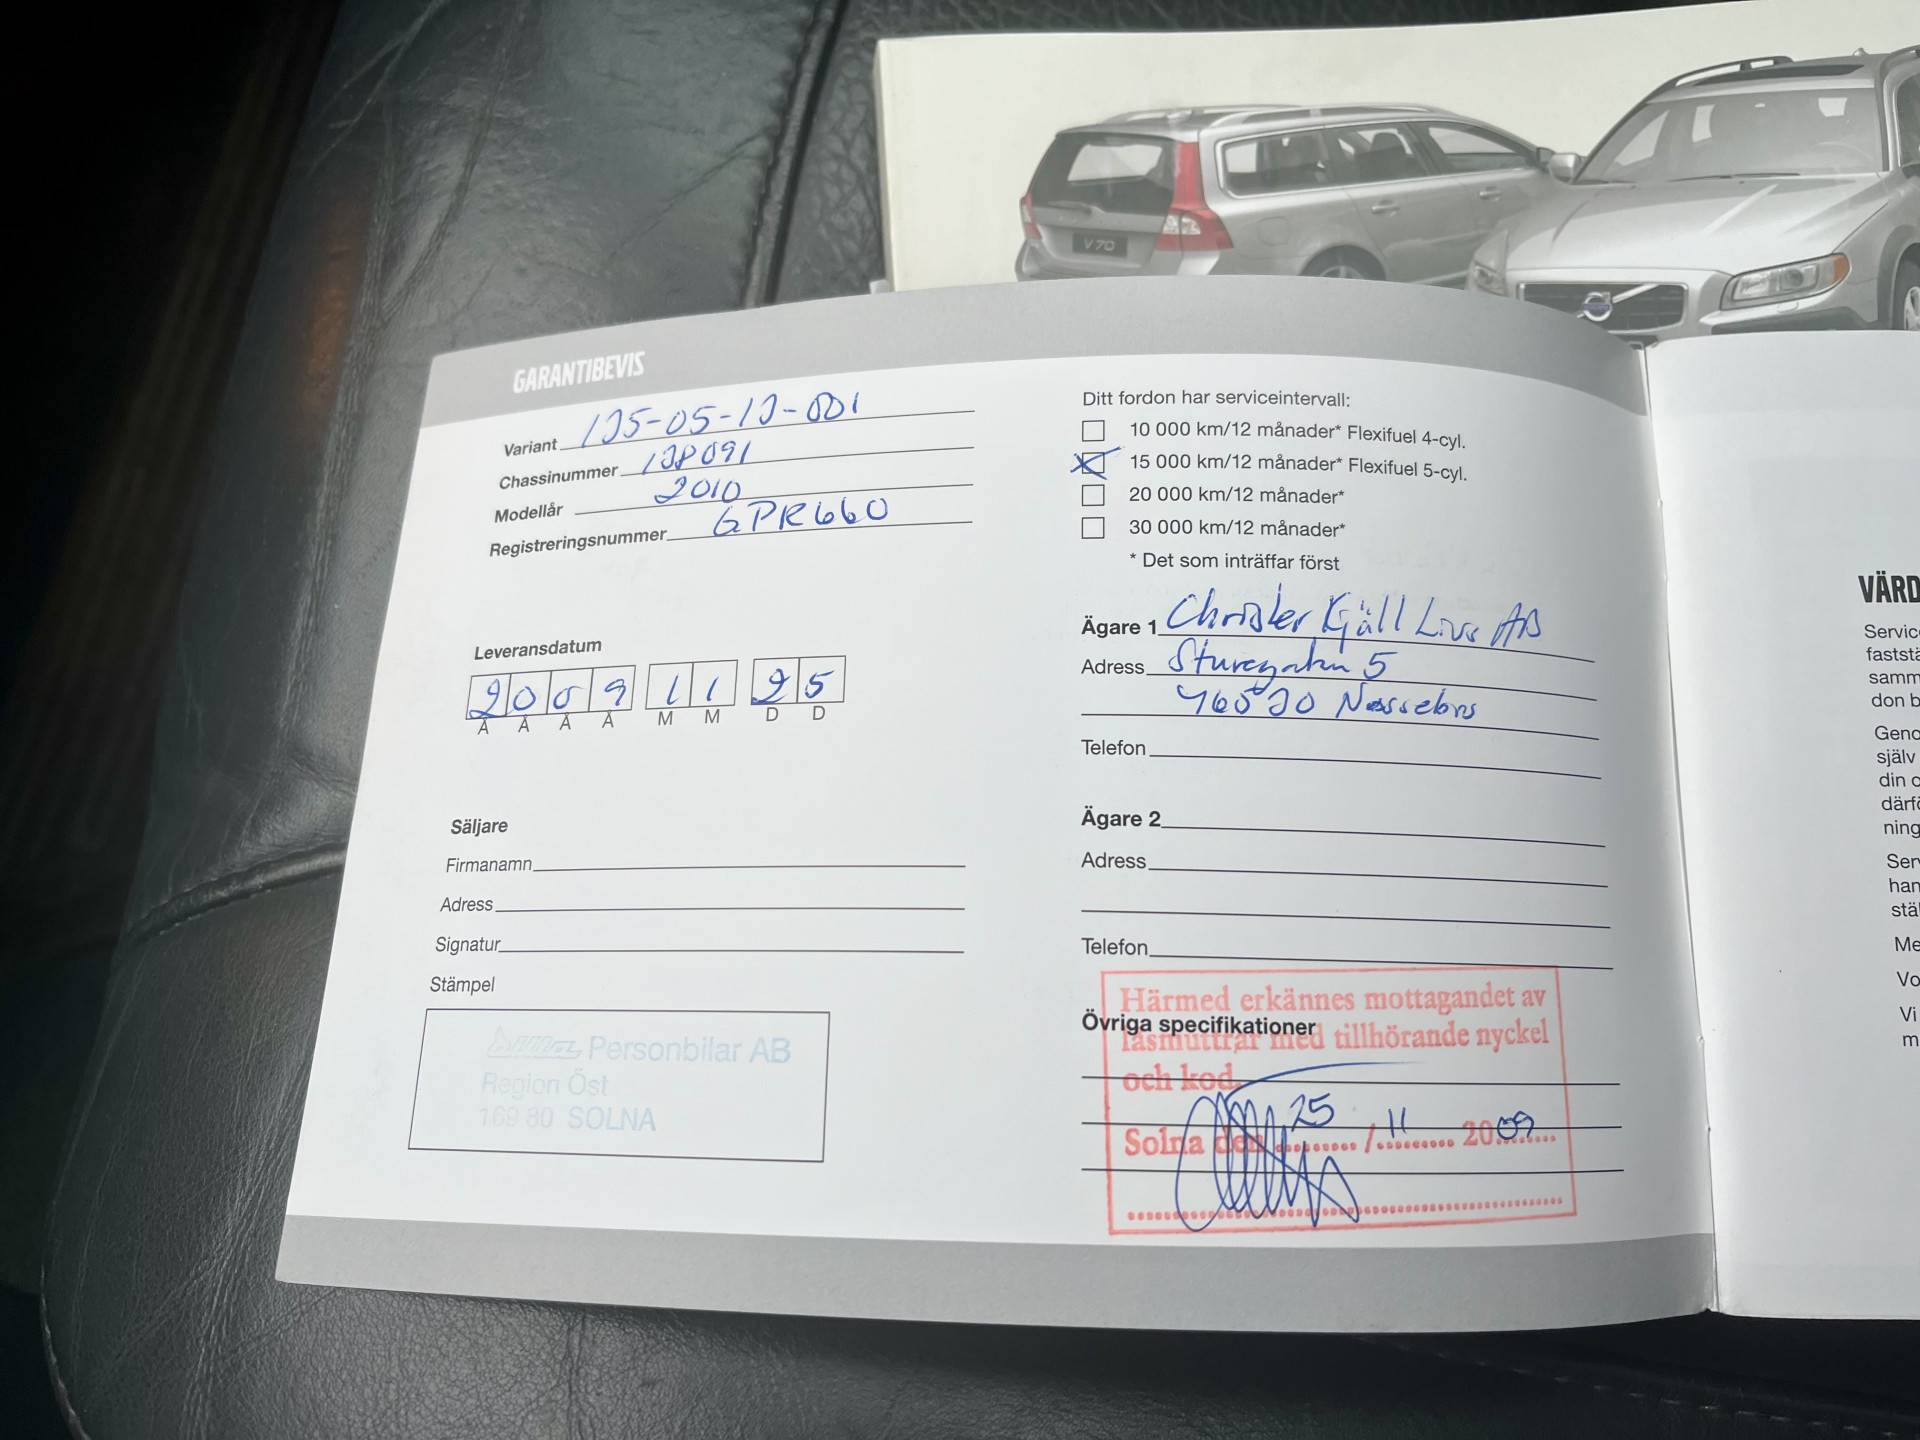 V70
GARANTIBEVIS
Variant 135-05-13-001
Chassinummer 138091
Modellår 2010
Registreringsnummer GPR660
Leveransdatum
2009 11 25
Å Å Å Å M M D D
Säljare
Firmanamn
Adress
Signatur
Stämpel
Personbilar AB
Region Öst
169 80 SOLNA
Ditt fordon har serviceintervall:
10 000 km/12 månader* Flexifuel 4-cyl.
15 000 km/12 månader* Flexifuel 5-cyl.
20 000 km/12 månader*
30 000 km/12 månader*
* Det som inträffar först
Ägare 1 Christer Kjäll Livs AB
Adress Sturegatan 5
46530 Nossebro
Telefon
Ägare 2
Adress
Telefon
Övriga specifikationer
Härmed erkännes mottagandet av
låsmuttrar med tillhörande nyckel
och kod.
Solna den 25 / 11 2009
VÄRD
Servic
faststä
samm
don b
Geno
själv
din o
därfö
ning
Ser
han
stäl
Me
Vo
Vi
m